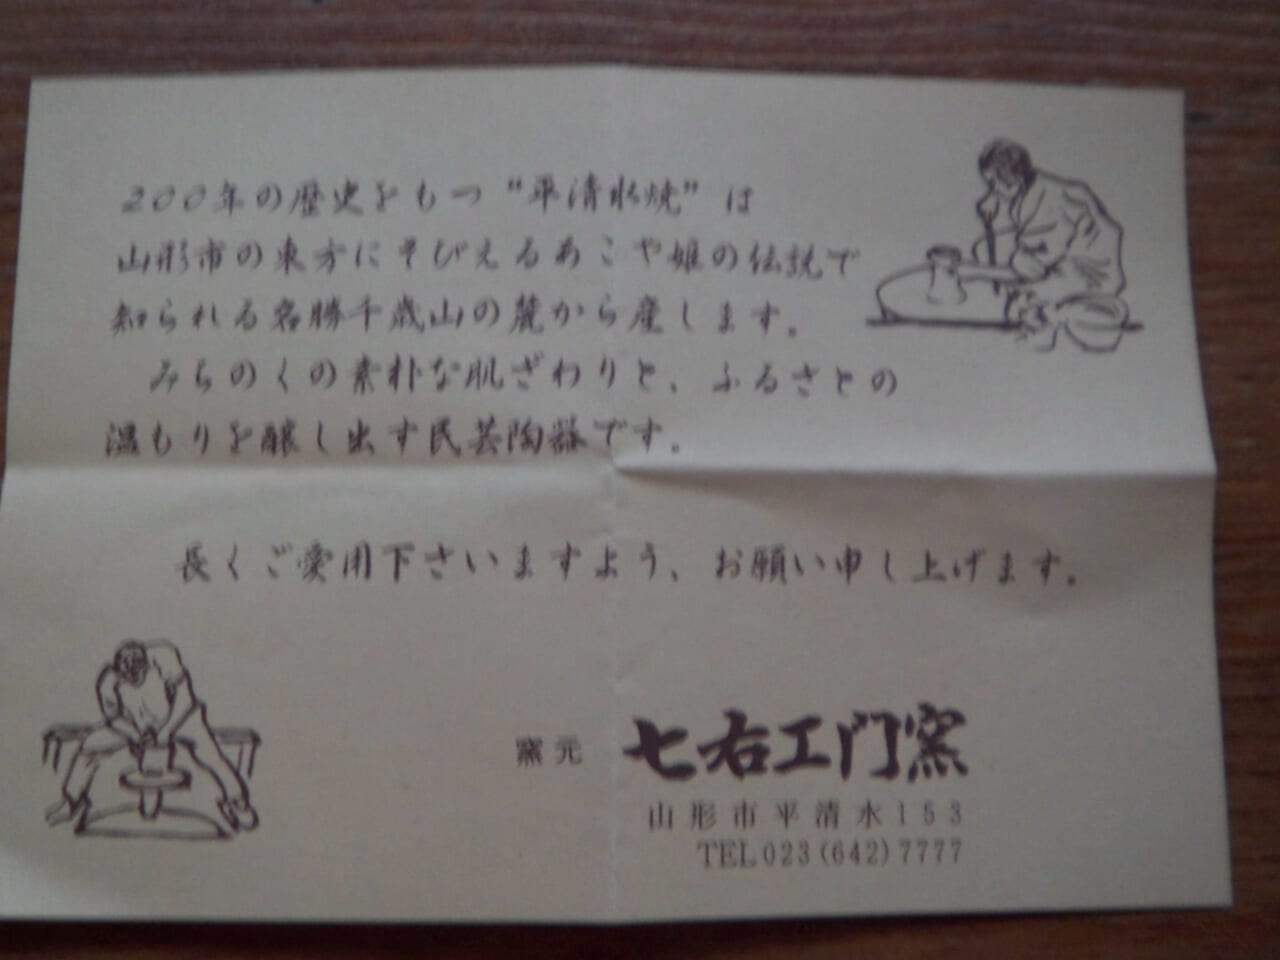 200年の歴史をもつ"平清水焼"は
山形市の東方にそびえるあこや姫の伝説で
知られる名勝千歳山の麓から産します。
みちのくの素朴な肌ざわりと、ふるさとの
温もりを醸し出す民芸陶器です。
長くご愛用下さいますよう、お願い申し上げます。
窯元 七右エ門窯
山形市平清水153
TEL023(642)7777